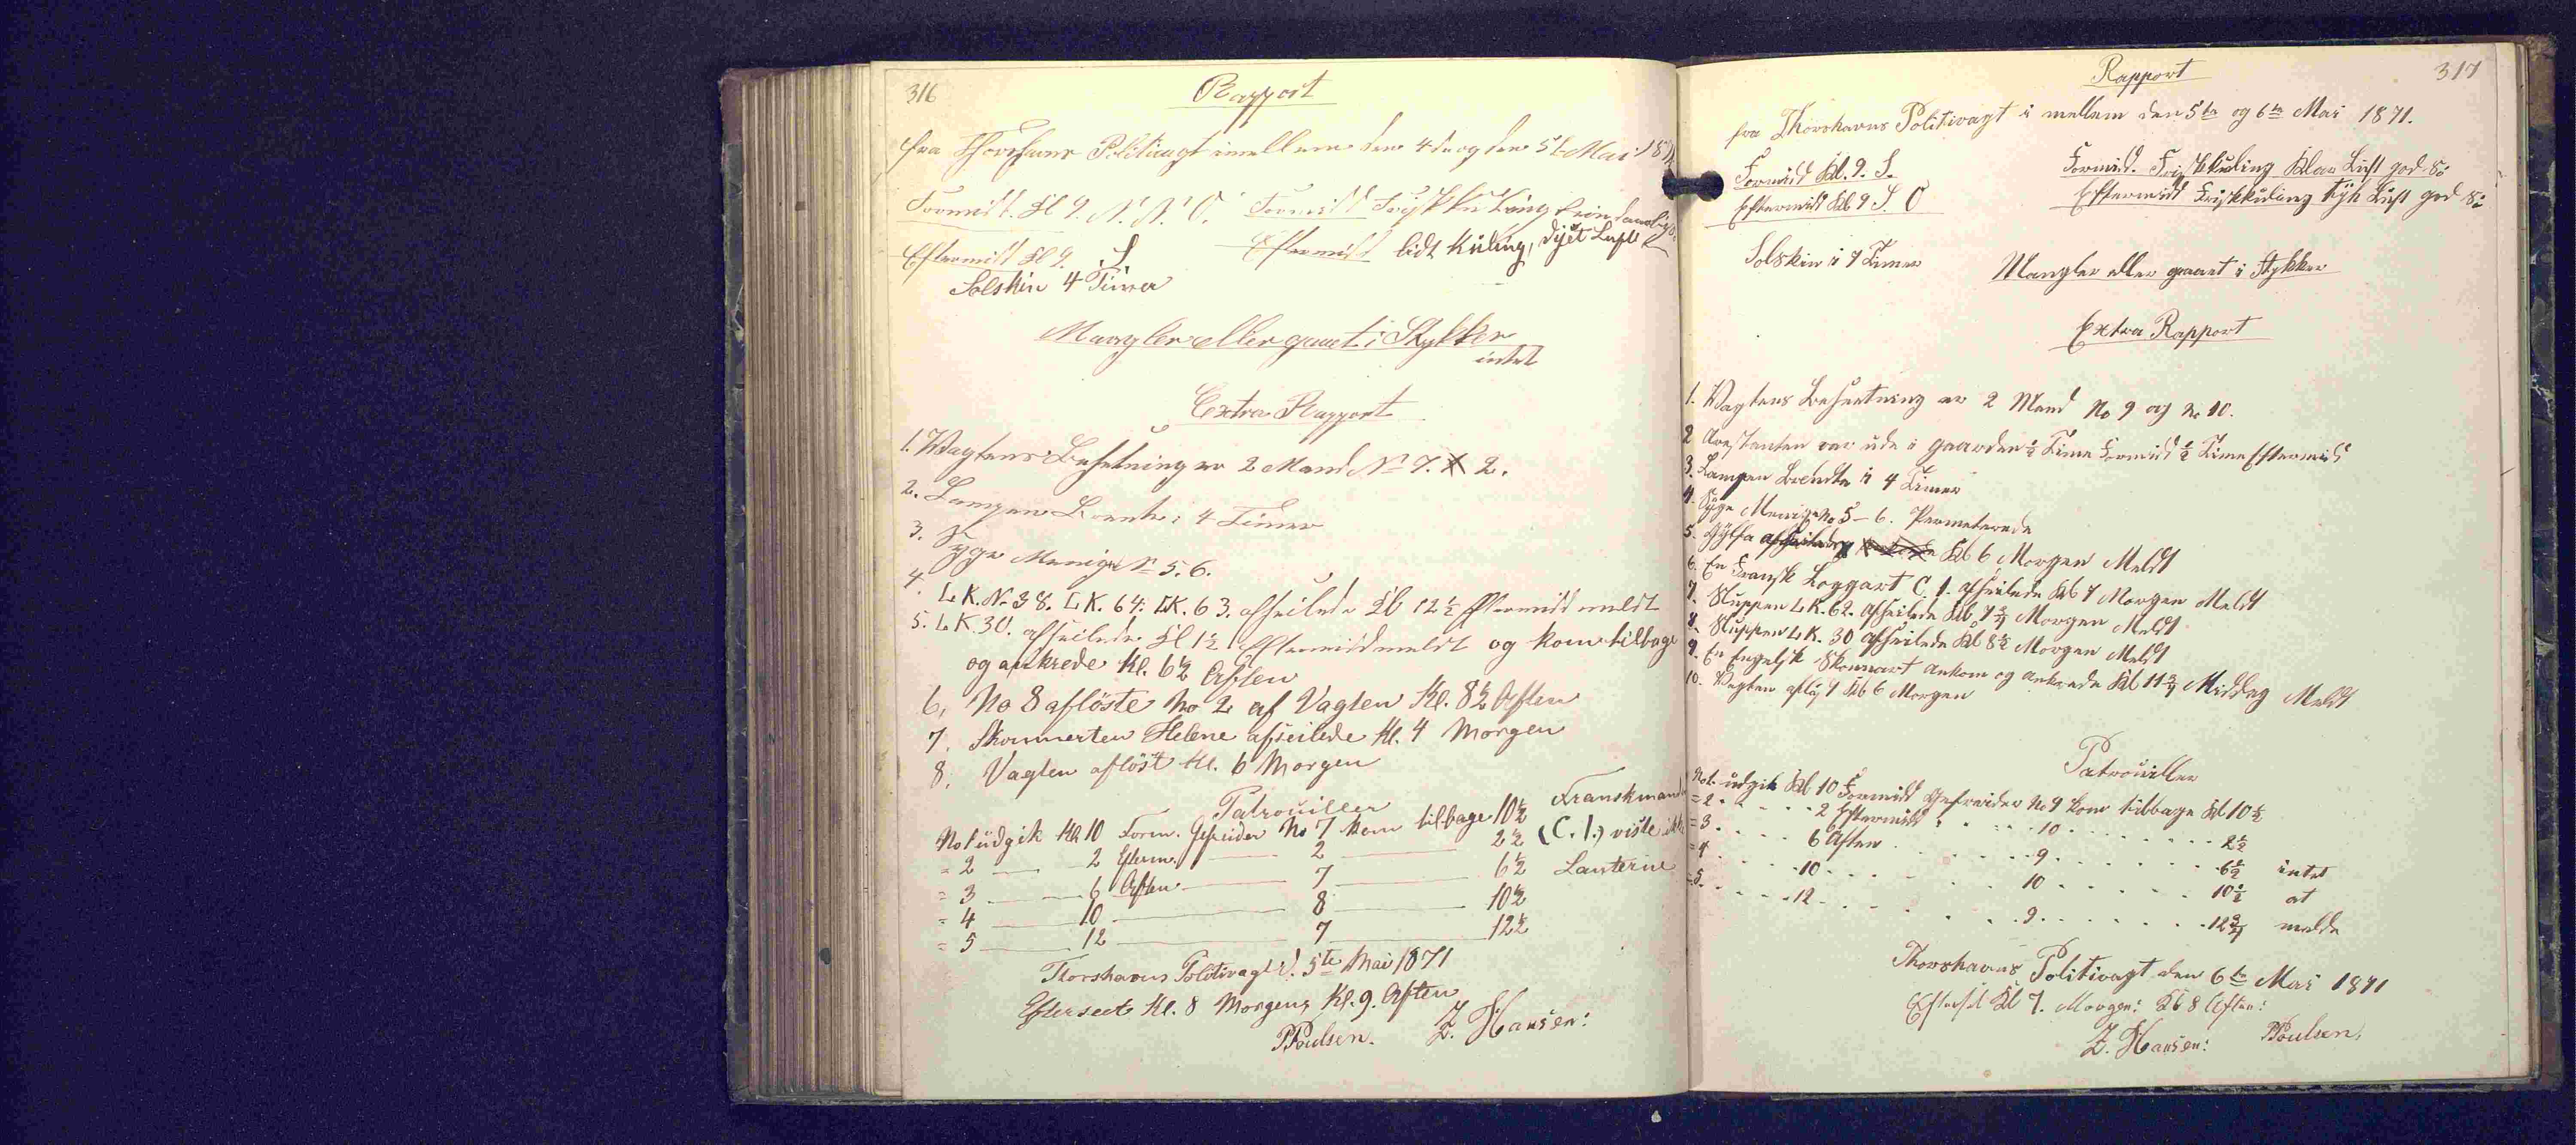 316
Rapport
fra Thorshavns Politivagt imellem den 4de og den 5te Mai 1871
Formidd. Kl 9. N. N. O. Formidd Frisk Kuling
Eftermidd Kl 9. S. Eftermidd lidt Kuling, Luft
Solskin 4 Timer
Mangler eller gaaet i Stykker
intet
Extra Rapport
1. Vagtens Besetning er 2 Mand No 7. 2.
2. Lampen Brente i 4 Timer
3. Syge Menige No 5. 6.
4. L K. No 38. L K. 64: LK. 63. afseilede Kl 12½ Eftermidd meldt
5. L K 30. afseilede Kl 1½ Eftermidd meldt og kom tilbage
og ankrede Kl. 6½ Aften
6, No 8 aflöste No 2 af Vagten Kl. 8½ Aften
7. Skonnerten Helene afseilede Kl. 4 Morgen
8, Vagten aflöst Kl. 6 Morgen
Patrouiller
No 1 udgik Kl 10 Form. Gefreider No 7 kom tilbage 10½ Franskmand
= 2 2 Efterm. 2 2½ (C. 1.) viste ikke
= 3 6 Aften 7 6½ Lanterne
= 4 10 8 10½
= 5 12 7 12½
Thorshavns Politivagt d. 5te Mai 1871
Efterseet Kl. 8 Morgen, Kl. 9. Aften
PPoulsen. Z. Hansen:
317
Rapport
fra Thorshavns Politivagt i mellem den 5te og 6te Mai 1871.
Formidd Kl. 9. S. Formid. Friskkuling Klar Luft god Sö
Eftermidd Kl 9 S. O Eftermidd Friskkuling tyk Luft god Sö
Solskin i 7 Timer
Mangler eller gaaet i Stykker
Extra Rapport
1. Vagtens Besetning er 2 Mand No 9 og No 10.
2 Arestanten var ude i Gaarden ½ Time Formidd ½ Time Eftermidd
3. Lampen Brendte i 4 Timer
4. Syge Menige No 5 – 6. Permeterede
5. Gylfa afseilede Kl 6 Morgen Meldt
6. En Fransk Loggart C. 1. afseilede Kl 7 Morgen Meldt
7. Sluppen L. K. 62. afseilede Kl 7¾ Morgen Meldt
8. Sluppen L. K. 30 afseilede Kl 8½ Morgen Meldt
9. En Engelsk Skonnart ankom og ankrede Kl 11¾ Middag Meldt
10. Vagten aflöst Kl 6 Morgen
Patrouiller
No 1. udgik Kl 10 Formidd Gefreider No 9 kom tilbage Kl 10½
= 2 2 Eftermidd 10 2½
= 3 6 Aften 9 6½ intet
= 4 10 10 10½ at
= 5 12 9 12¾ melde
Thorshavns Politivagt den 6te Mai 1871
Efterseet Kl 7. Morgen: Kl 8 Aften:
Z. Hansen: PPoulsen.